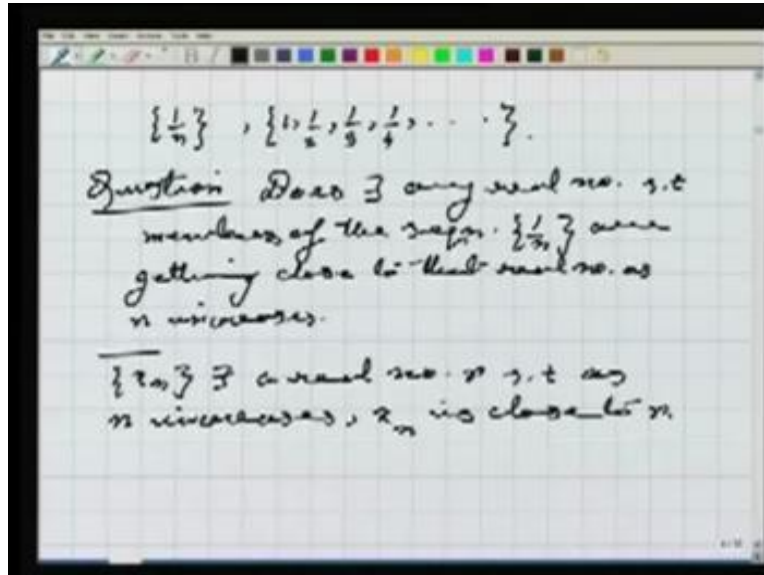 {1/n} , {1, 1/2, 1/3, 1/4, . . . }.
Question Does ∃ any real no. s.t
members of the seqn. {1/n} are
getting close to that real no. as
n increases.
{xn} ∃ a real no. r s.t as
n increases, xn is close to r.